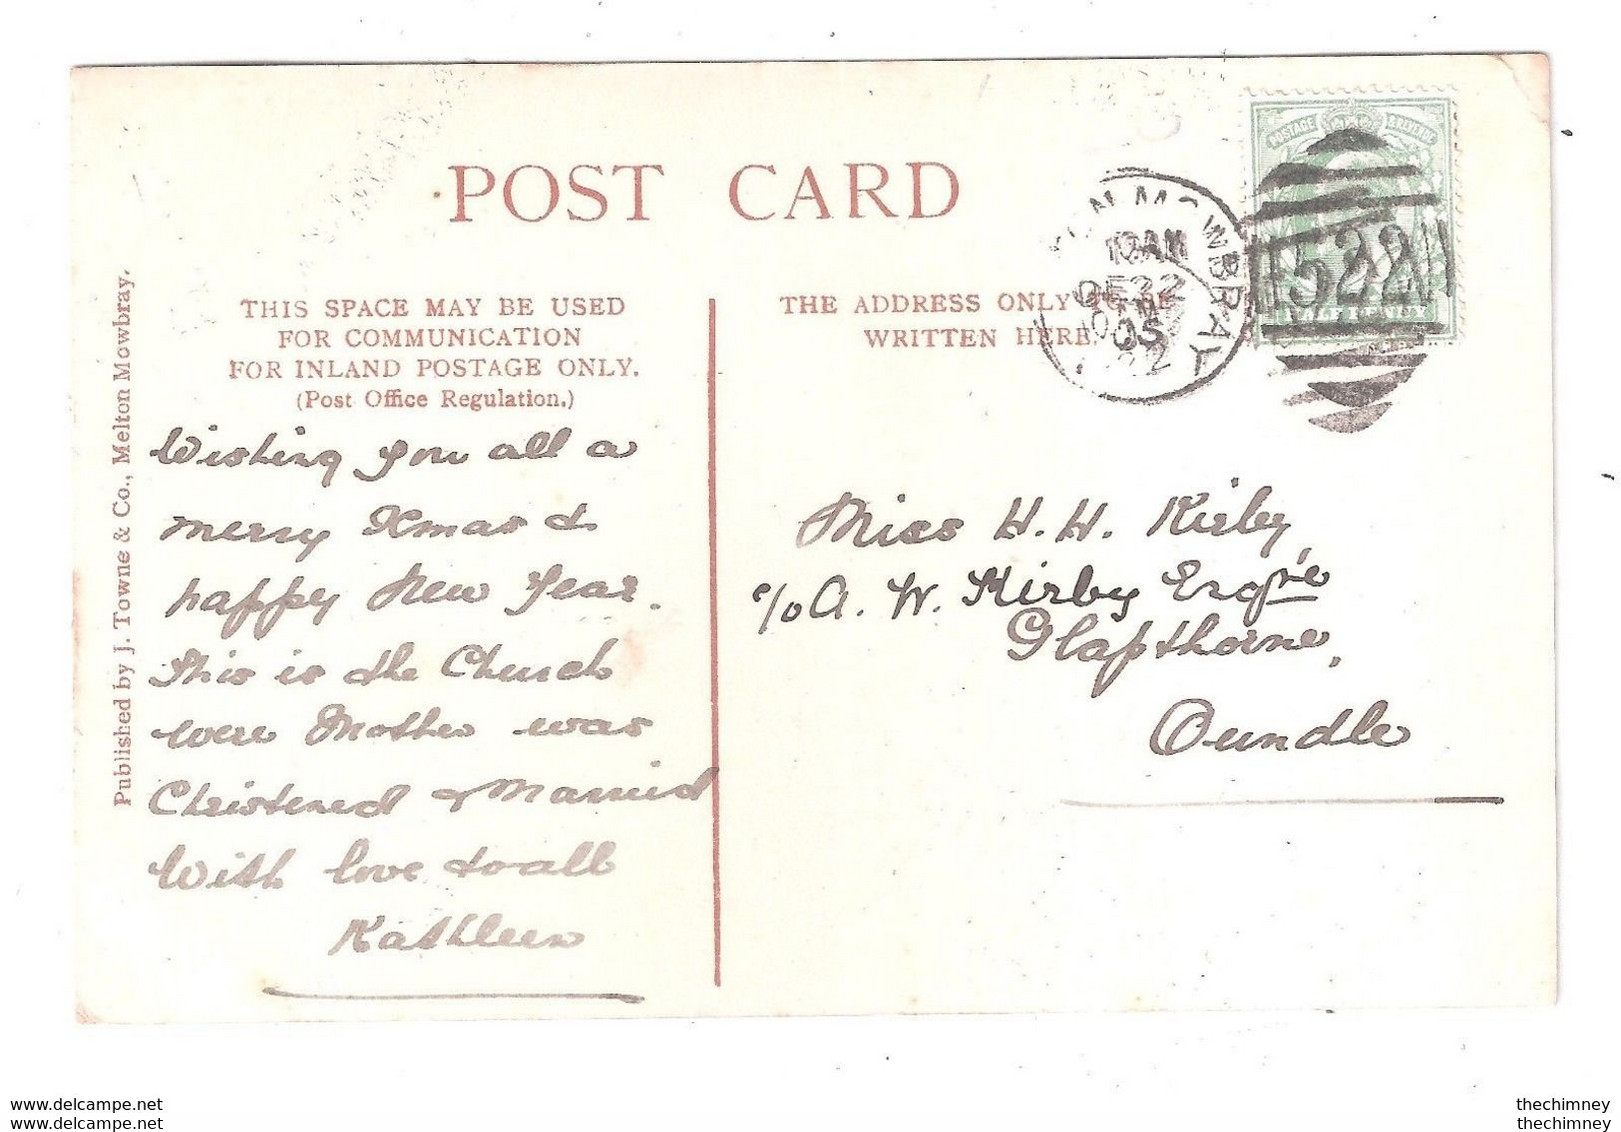 POST CARD
POSTAGE & REVENUE
HALF PENNY
522
MOWBRAY
DE 22
05
THIS SPACE MAY BE USED
FOR COMMUNICATION
FOR INLAND POSTAGE ONLY.
(Post Office Regulation.)
THE ADDRESS ONLY
WRITTEN HERE
Published by J. Towne & Co., Melton Mowbray.
Wishing you all a
merry Xmas &
happy New Year.
This is the Church
were Mother was
Christened & Married
With love to all
Kathleen
Miss H. H. Kirby
c/o A. W. Kirby Esqre
Glapthorne,
Oundle
www.delcampe.net
www.delcampe.net
thechimney
thechimney